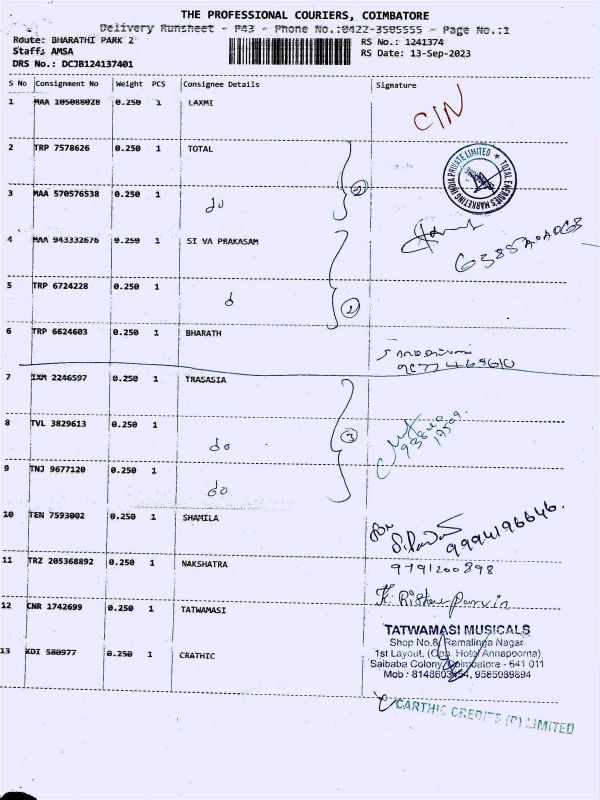 THE PROFESSIONAL COURIERS, COIMBATORE
Delivery Runsheet - P43 - Phone No.:0422-3505555 - Page No.:1
Route: BHARATHI PARK 2 RS No.: 1241374
Staff: AMSA RS Date: 13-Sep-2023
DRS No.: DCJB124137401
S No Consignment No Weight PCS Consignee Details Signature
1 MAA 105088028 0.250 1 LAXMI CIN
2 TRP 7578626 0.250 1 TOTAL
TOTAL ENERGIES MARKETING INDIA PRIVATE LIMITED
3 MAA 570576538 0.250 1 do
4 MAA 943332676 0.250 1 SI VA PRAKASAM
5 TRP 6724228 0.250 1 do 2
6 TRP 6624603 0.250 1 BHARATH
7 IXM 2246597 0.250 1 TRASASIA
8 TVL 3829613 0.250 1 do 3
9 TNJ 9677120 0.250 1 do
10 TEN 7593002 0.250 1 SHAMILA 9994196646.
11 TRZ 205368892 0.250 1 NAKSHATRA 9791200898
12 CNR 1742699 0.250 1 TATWAMASI
TATWAMASI MUSICALS
Shop No.8, Ramalinga Nagar
1st Layout, (Opp. Hotel Annapoorna)
Saibaba Colony, Coimbatore - 641 011
Mob : 9585089894
13 KDI 580977 0.250 1 CRATHIC
CARTHIC CREDITS (P) LIMITED